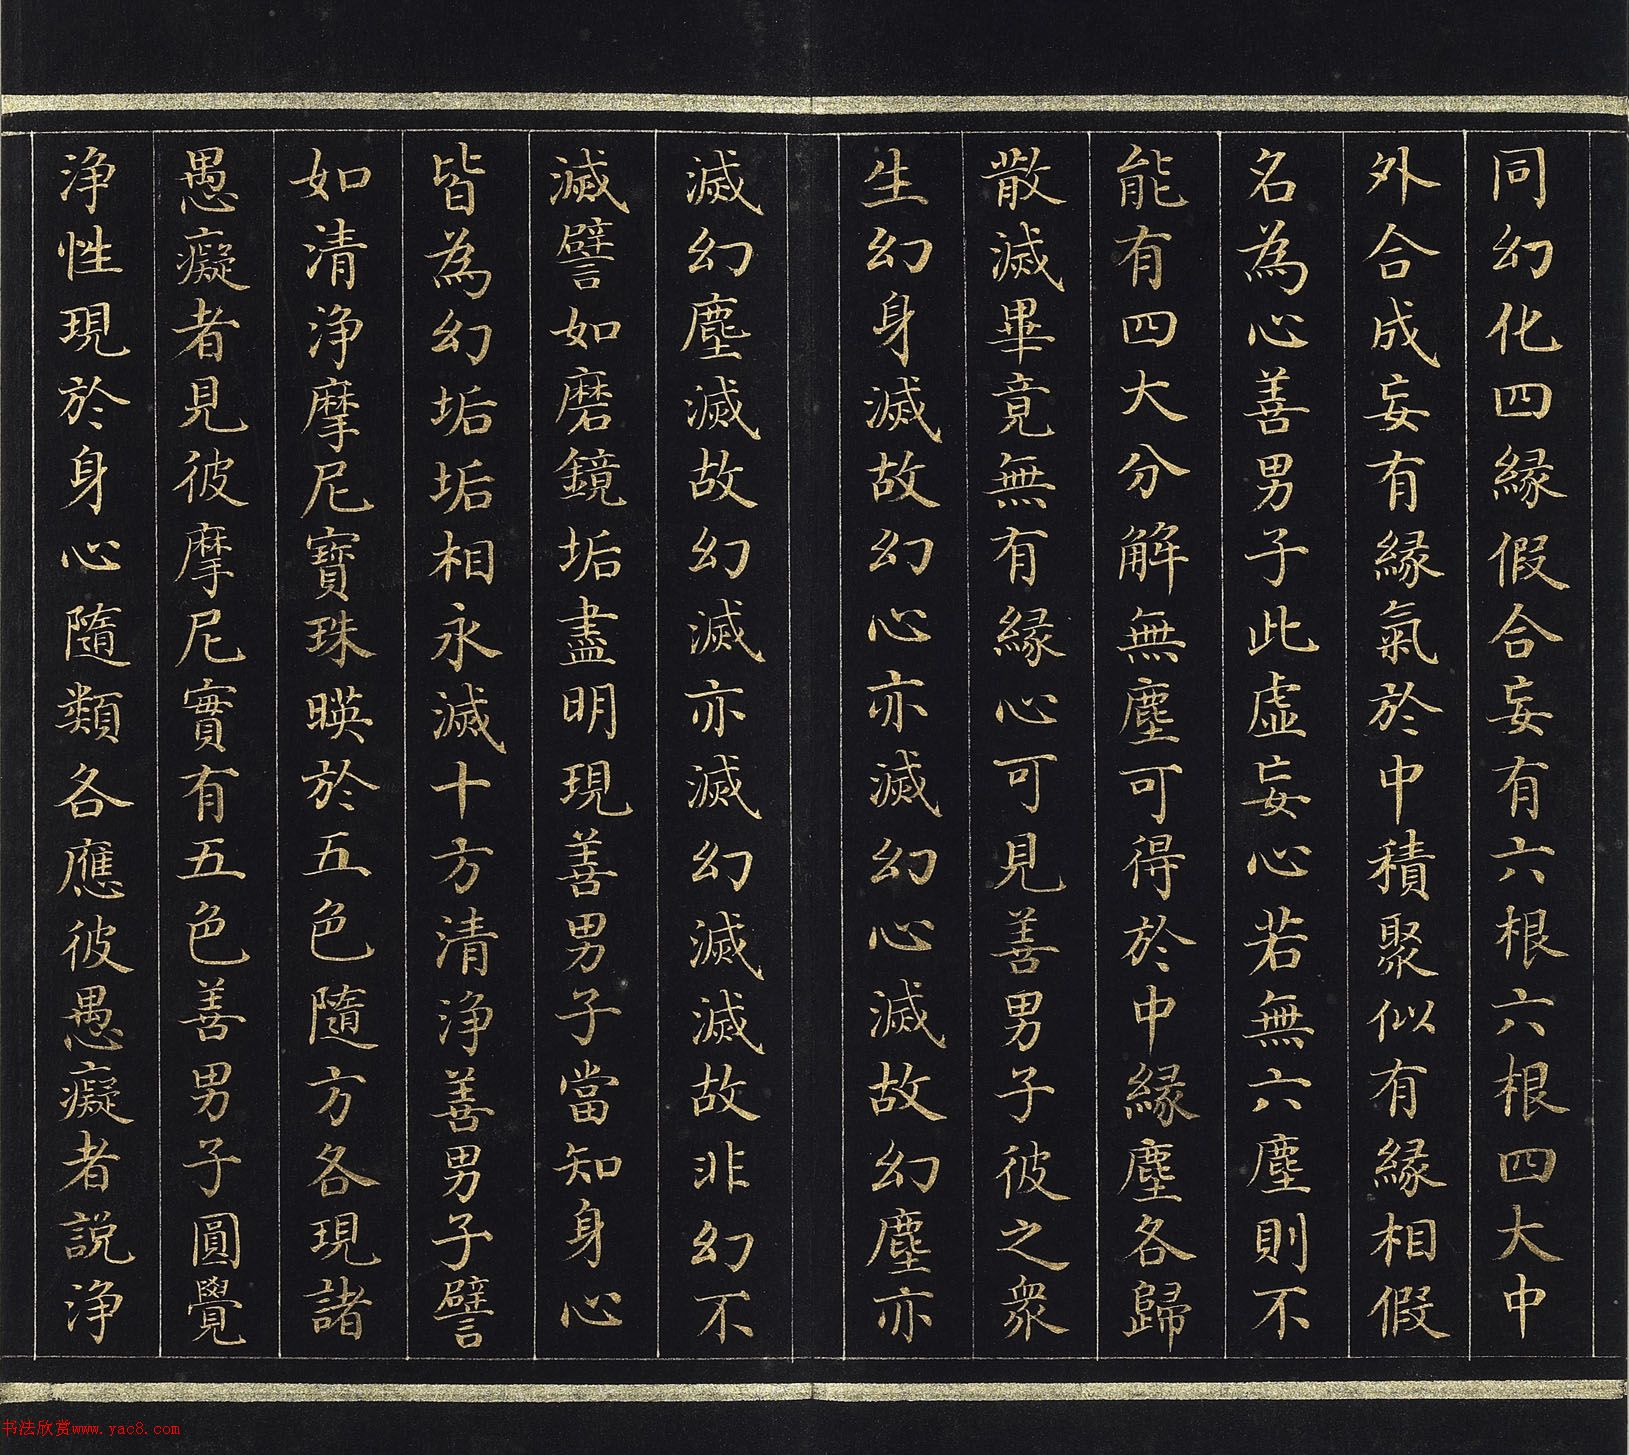 同幻化四縁假合妄有六根六根四大中
外合成妄有縁氣於中積聚似有縁相假
名為心善男子此虛妄心若無六塵則不
能有四大分解無塵可得於中縁塵各歸
散滅畢竟無有縁心可見善男子彼之衆
生幻身滅故幻心亦滅幻心滅故幻塵亦
滅幻塵滅故幻滅亦滅幻滅滅故非幻不
滅譬如磨鏡垢盡明現善男子當知身心
皆為幻垢垢相永滅十方清浄善男子譬
如清浄摩尼寶珠暎於五色隨方各現諸
愚癡者見彼摩尼實有五色善男子圓覺
浄性現於身心隨類各應彼愚癡者説浄
书法欣赏www.yac8.com